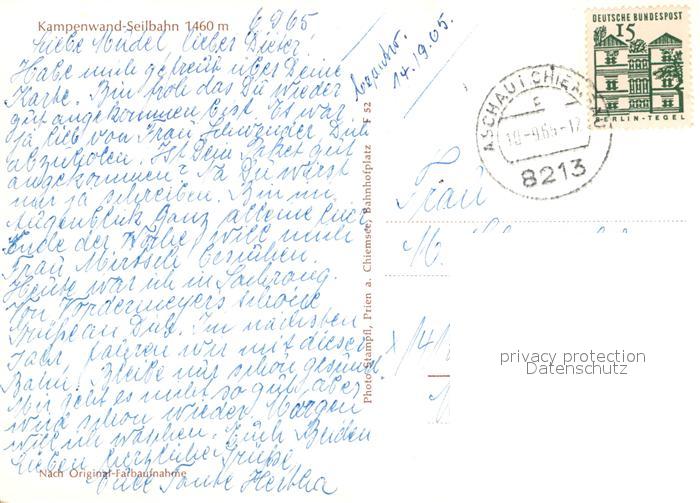 Kampenwand-Seilbahn 1460 m
6.9.65
Liebe Mudel, lieber Dieter!
Habe mich gefreut über Deine
Karte. Bin froh das Du wieder
gut angekommen bist. Es war
ja lieb von Frau Dich
abzuholen. Ist Dein Paket gut
angekommen? Na Du wirst
mir ja schreiben. Bin im
Augenblick ganz alleine hier
Ende der Woche will mich
Frau besuchen.
Heute war ich in Sachrang.
Von Vordermeyers schöne
Grüße an Dich. Im nächsten
Jahr fahren wir mit dieser
Bahn! Bleibe nur schön gesund
Mir geht es nicht so gut, aber
wird schon wieder. Morgen
will ich waschen. Euch Beiden
lieben herzliche Grüße
Eure Tante Hertha
Nach Original-Farbaufnahme
Photo Stampfl, Prien a. Chiemsee, Bahnhofplatz F 52
14.19.65.
DEUTSCHE BUNDESPOST
15
BERLIN-TEGEL
ASCHAU I. CHIEMGAU
c
10.-9.65-17
8213
Frau
M.
privacy protection
Datenschutz